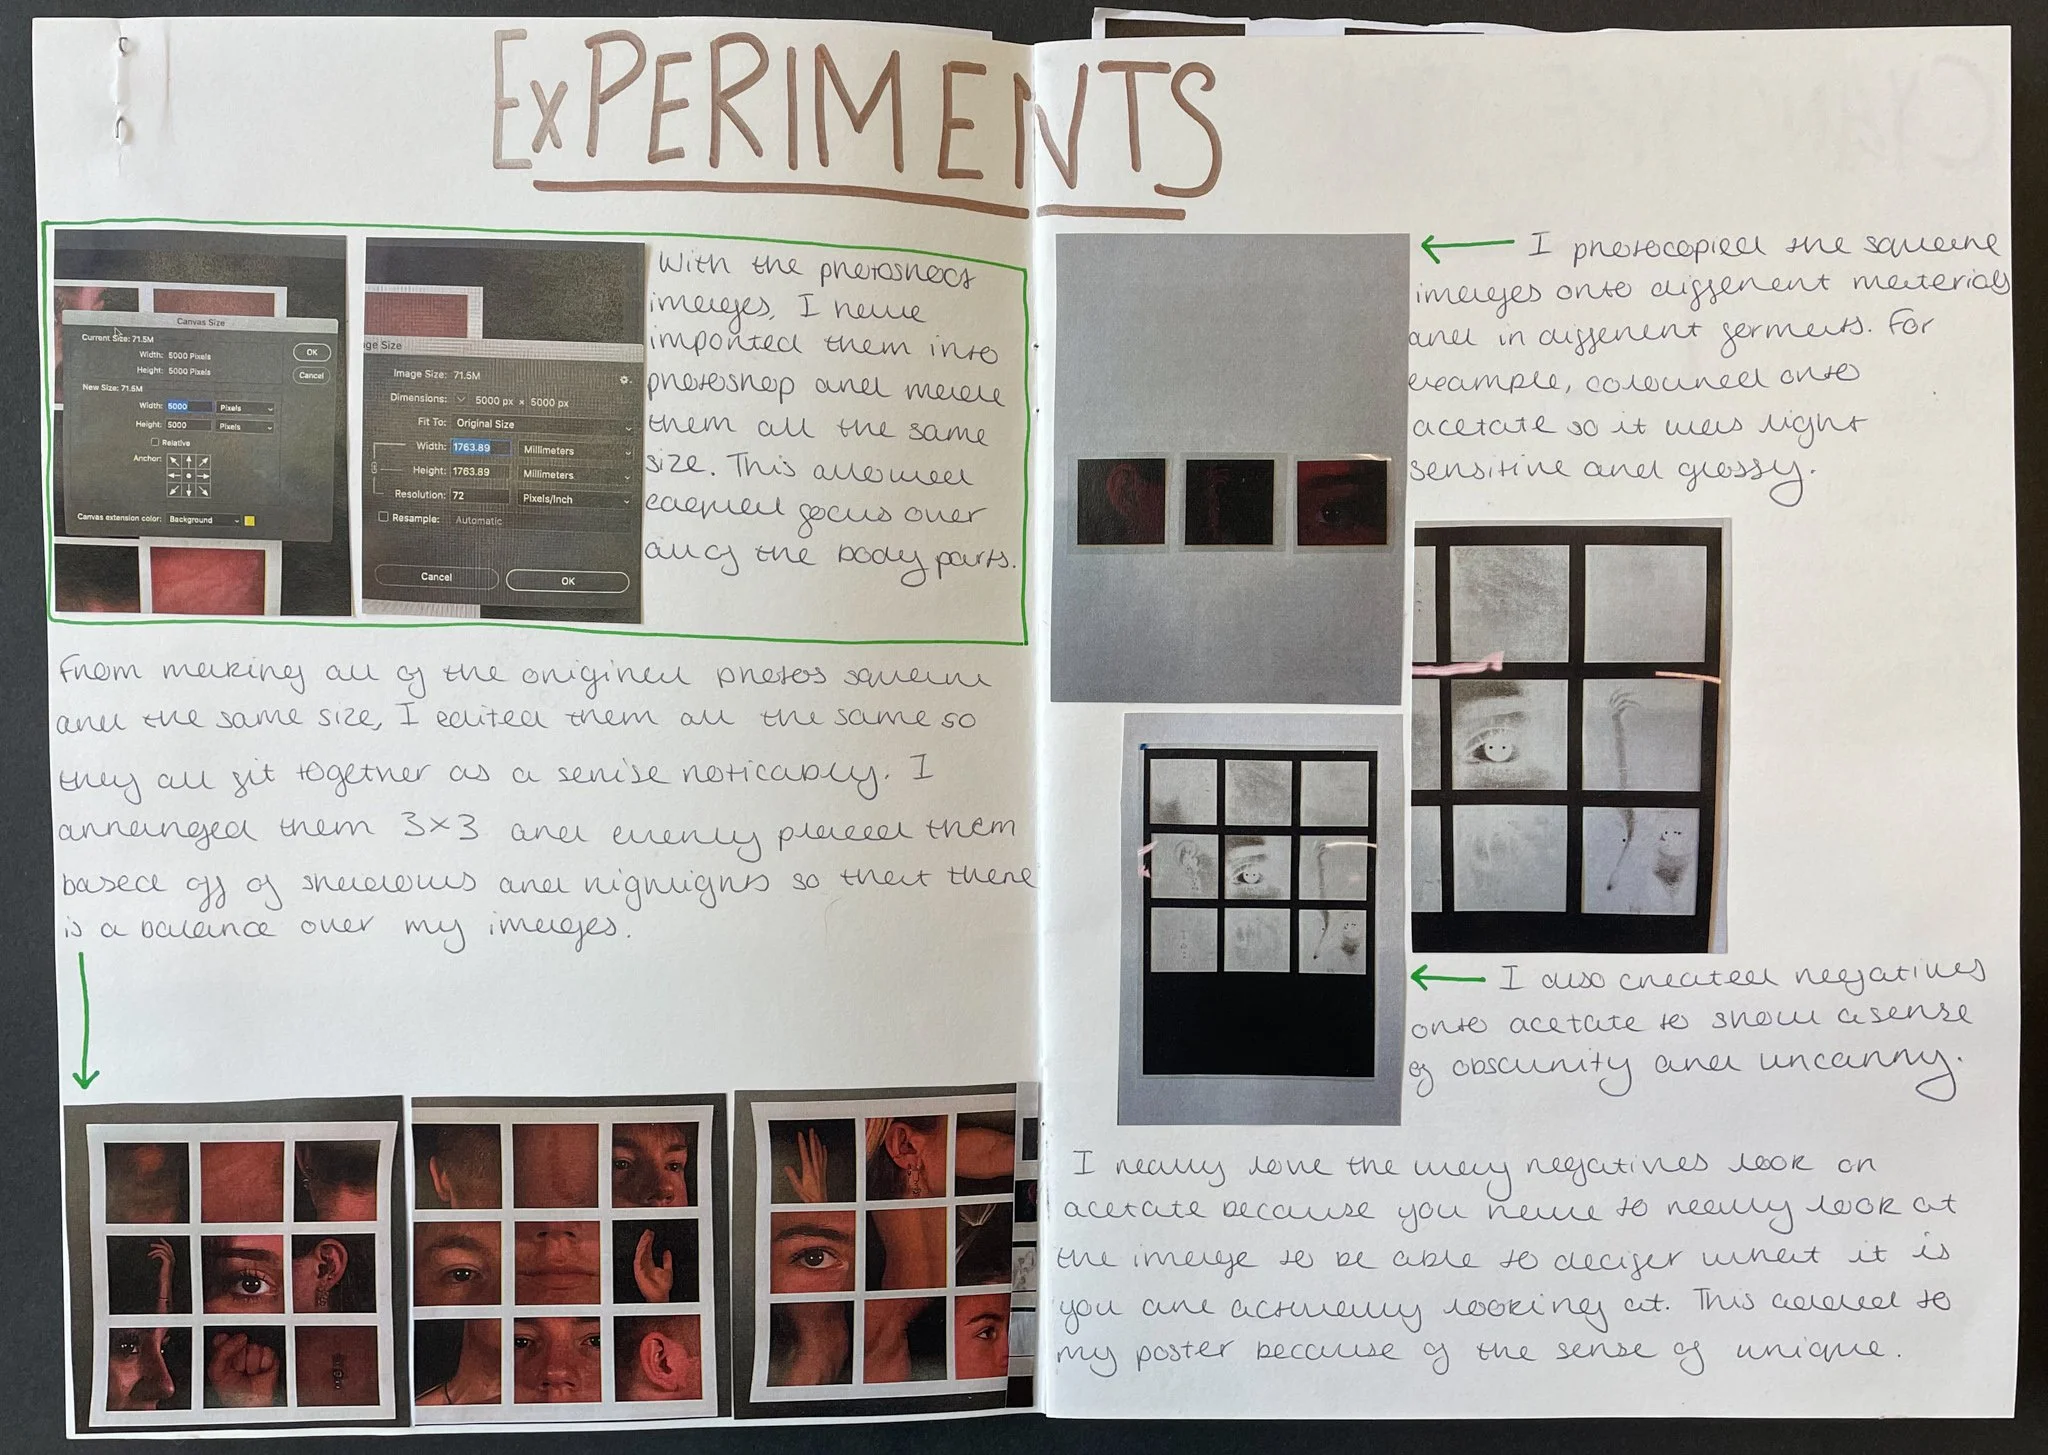 EXPERIMENTS
Canvas Size
Current Size: 71.5M
Width: 5000 Pixels
Height: 5000 Pixels
New Size: 71.5M
Width: 5000 Pixels
Height: 5000 Pixels
Relative
Anchor:
Canvas extension color: Background
OK
Cancel
age Size
Image Size: 71.5M
Dimensions: 5000 px × 5000 px
Fit To: Original Size
Width: 1763.89 Millimeters
Height: 1763.89 Millimeters
Resolution: 72 Pixels/Inch
Resample: Automatic
Cancel OK
With the photoshoot
images, I have
imported them into
photoshop and made
them all the same
size. This allowed
equal focus over
all of the body parts.
From making all of the original photos square
and the same size, I edited them all the same so
they all fit together as a serise noticably. I
arranged them 3×3 and evenly placed them
based off of shadows and highlights so that there
is a balance over my images.
I photocopied the square
images onto different materials
and in different formats. For
example, coloured onto
acetate so it was light
sensitive and glossy.
I also created negatives
onto acetate to show a sense
of obscurity and uncanny.
I really love the way negatives look on
acetate because you have to really look at
the image to be able to decifer what it is
you are actually looking at. This added to
my poster because of the sense of unique.